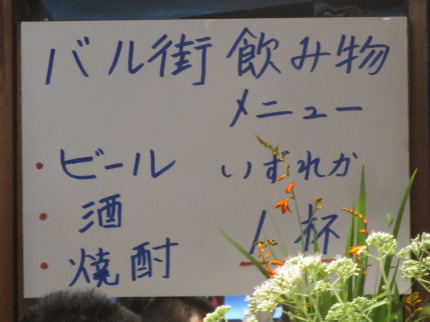 バル街 飲み物
メニュー
・ビール いずれか
・酒
・焼酎 1杯